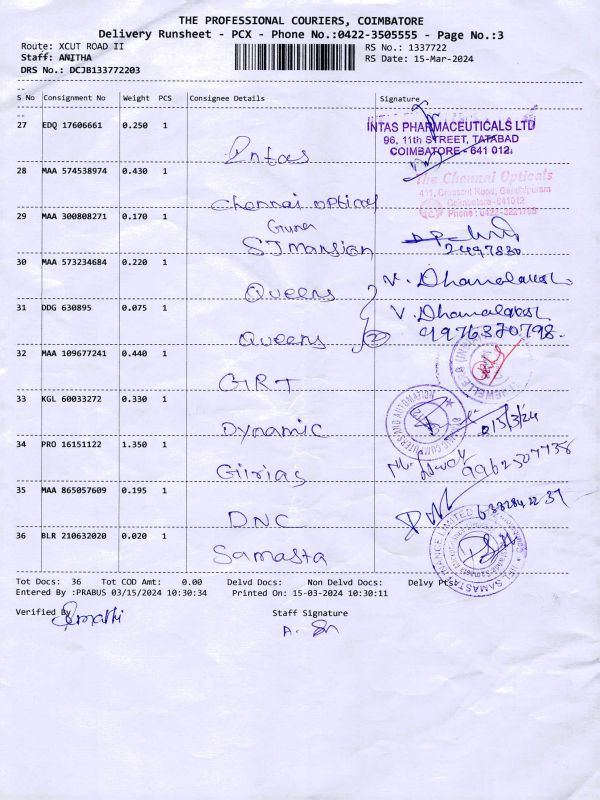 THE PROFESSIONAL COURIERS, COIMBATORE
Delivery Runsheet - PCX - Phone No.:0422-3505555 - Page No.:3
Route: XCUT ROAD II RS No.: 1337722
Staff: ANITHA RS Date: 15-Mar-2024
DRS No.: DCJB133772203
S No Consignment No Weight PCS Consignee Details Signature
27 EDQ 17606661 0.250 1
INTAS PHARMACEUTICALS LTD
96, 11th STREET, TATABAD
COIMBATORE - 641 012.
Intas
28 MAA 574538974 0.430 1
The Chennai Opticals
411, Crosscut Road, Gandhipuram
Coimbatore-641012
Phone: 0422-3221108
Chennai optical
29 MAA 300808271 0.170 1
SJ mansion
2497830
30 MAA 573234684 0.220 1
Queens
V. Dhanalakshmi
31 DDG 630895 0.075 1
V. Dhanalakshmi
Queens 2
9976370798.
32 MAA 109677241 0.440 1
GRT
33 KGL 60033272 0.330 1
Dynamic
15/3/24
34 PRO 16151122 1.350 1
Giirias
9962507738
35 MAA 865057609 0.195 1
DNC
36 BLR 210632020 0.020 1
Samasta
Tot Docs: 36 Tot COD Amt: 0.00 Delvd Docs: Non Delvd Docs: Delvy Pts:
Entered By :PRABUS 03/15/2024 10:30:34 Printed On: 15-03-2024 10:30:11
Verified By Staff Signature